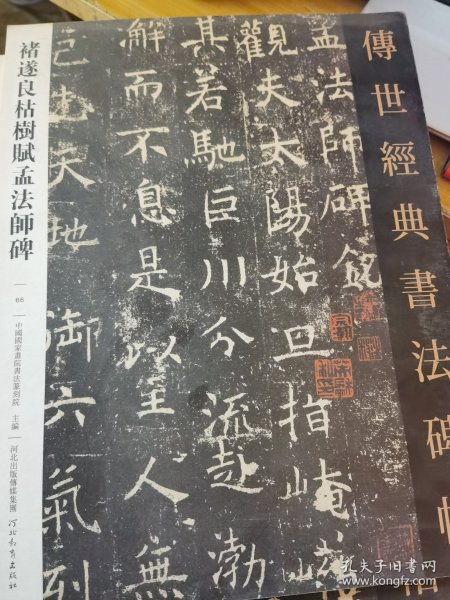 傳世經典書法碑帖
孟法師碑銘
觀夫太陽始旦指崦嵫
其若馳巨川分流赴渤
解而不息是以至人無
己
天地
御六氣
褚遂良枯樹賦孟法師碑
66
中國國家畫院書法篆刻院 主編
河北出版傳媒集團
河北教育出版社
孔夫子旧书网